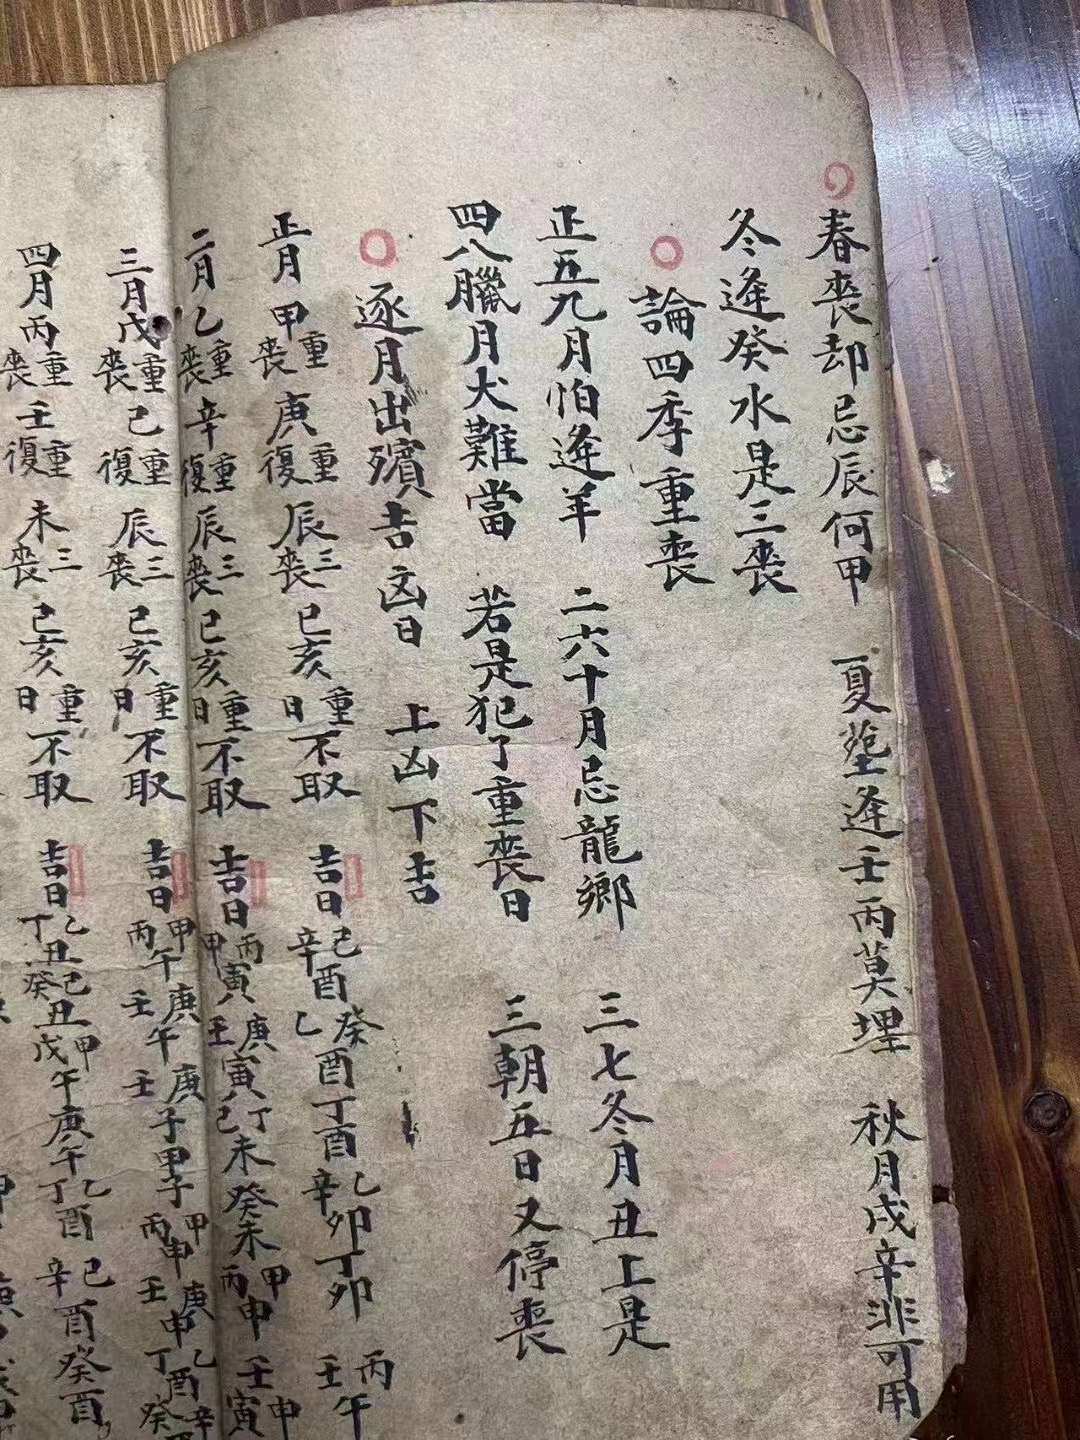 春喪却忌辰何甲 夏塟逢壬丙莫埋 秋月戌辛非可用
冬逢癸水是三喪
論四季重喪
正五九月怕逢羊 二六十月忌龍鄉 三七冬月丑上是
四八臘月犬難當 若是犯了重喪日 三朝五日又停喪
逐月出殯吉凶日 上凶下吉
正月甲重喪庚重復辰三喪巳亥重日不取 吉日己辛酉癸乙酉丁酉乙辛卯丁卯丙壬午
二月乙重喪辛重復辰三喪巳亥重日不取 吉日丙甲寅庚壬寅丁己未癸未甲丙申壬寅申
三月戊重喪己重復辰三喪巳亥重日不取 吉日甲丙午庚壬午庚壬子甲子甲丙申庚壬申乙丁酉辛癸
四月丙重喪壬重復未三喪巳亥重日不取 吉日乙丁丑己癸丑甲戊午庚午乙丁酉己辛酉癸酉